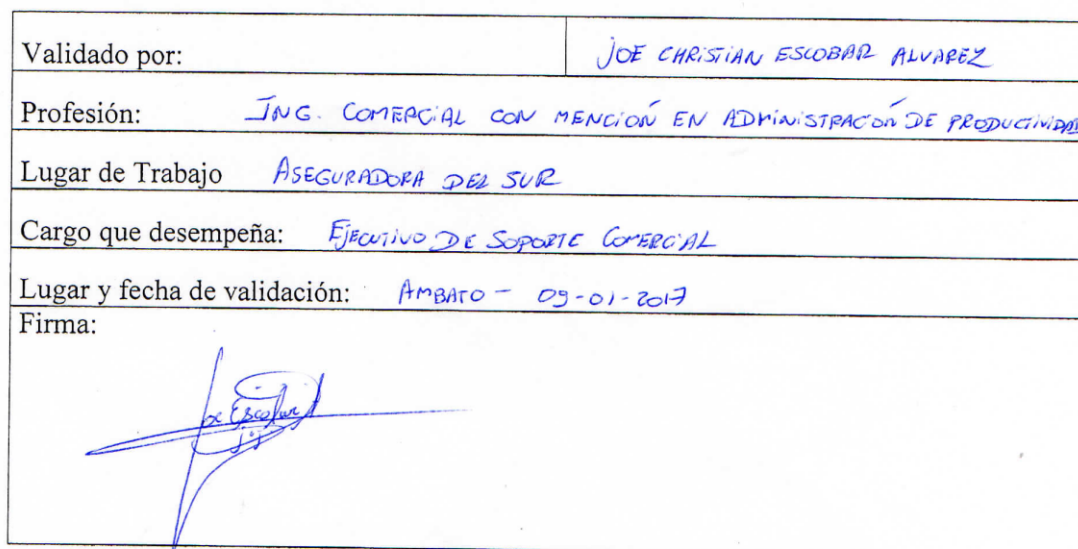 Validado por: JOE CHRISTIAN ESCOBAR ALVAREZ
Profesión: ING. COMERCIAL CON MENCIÓN EN ADMINISTRACIÓN DE PRODUCTIVIDAD
Lugar de Trabajo ASEGURADORA DEL SUR
Cargo que desempeña: EJECUTIVO DE SOPORTE COMERCIAL
Lugar y fecha de validación: AMBATO - 09-01-2017
Firma:
Joe Escobar